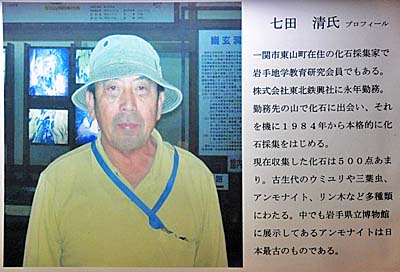 七田 清氏 プロフィール
一関市東山町在住の化石採集家で
岩手地学教育研究会員でもある。
株式会社東北鉄興社に永年勤務。
勤務先の山で化石に出会い、それ
を機に1984年から本格的に化
石採集をはじめる。
現在収集した化石は500点あま
り。古生代のウミユリや三葉虫、
アンモナイト、リン木など多種類
にわたる。中でも岩手県立博物館
に展示してあるアンモナイトは日
本最古のものである。
幽玄洞